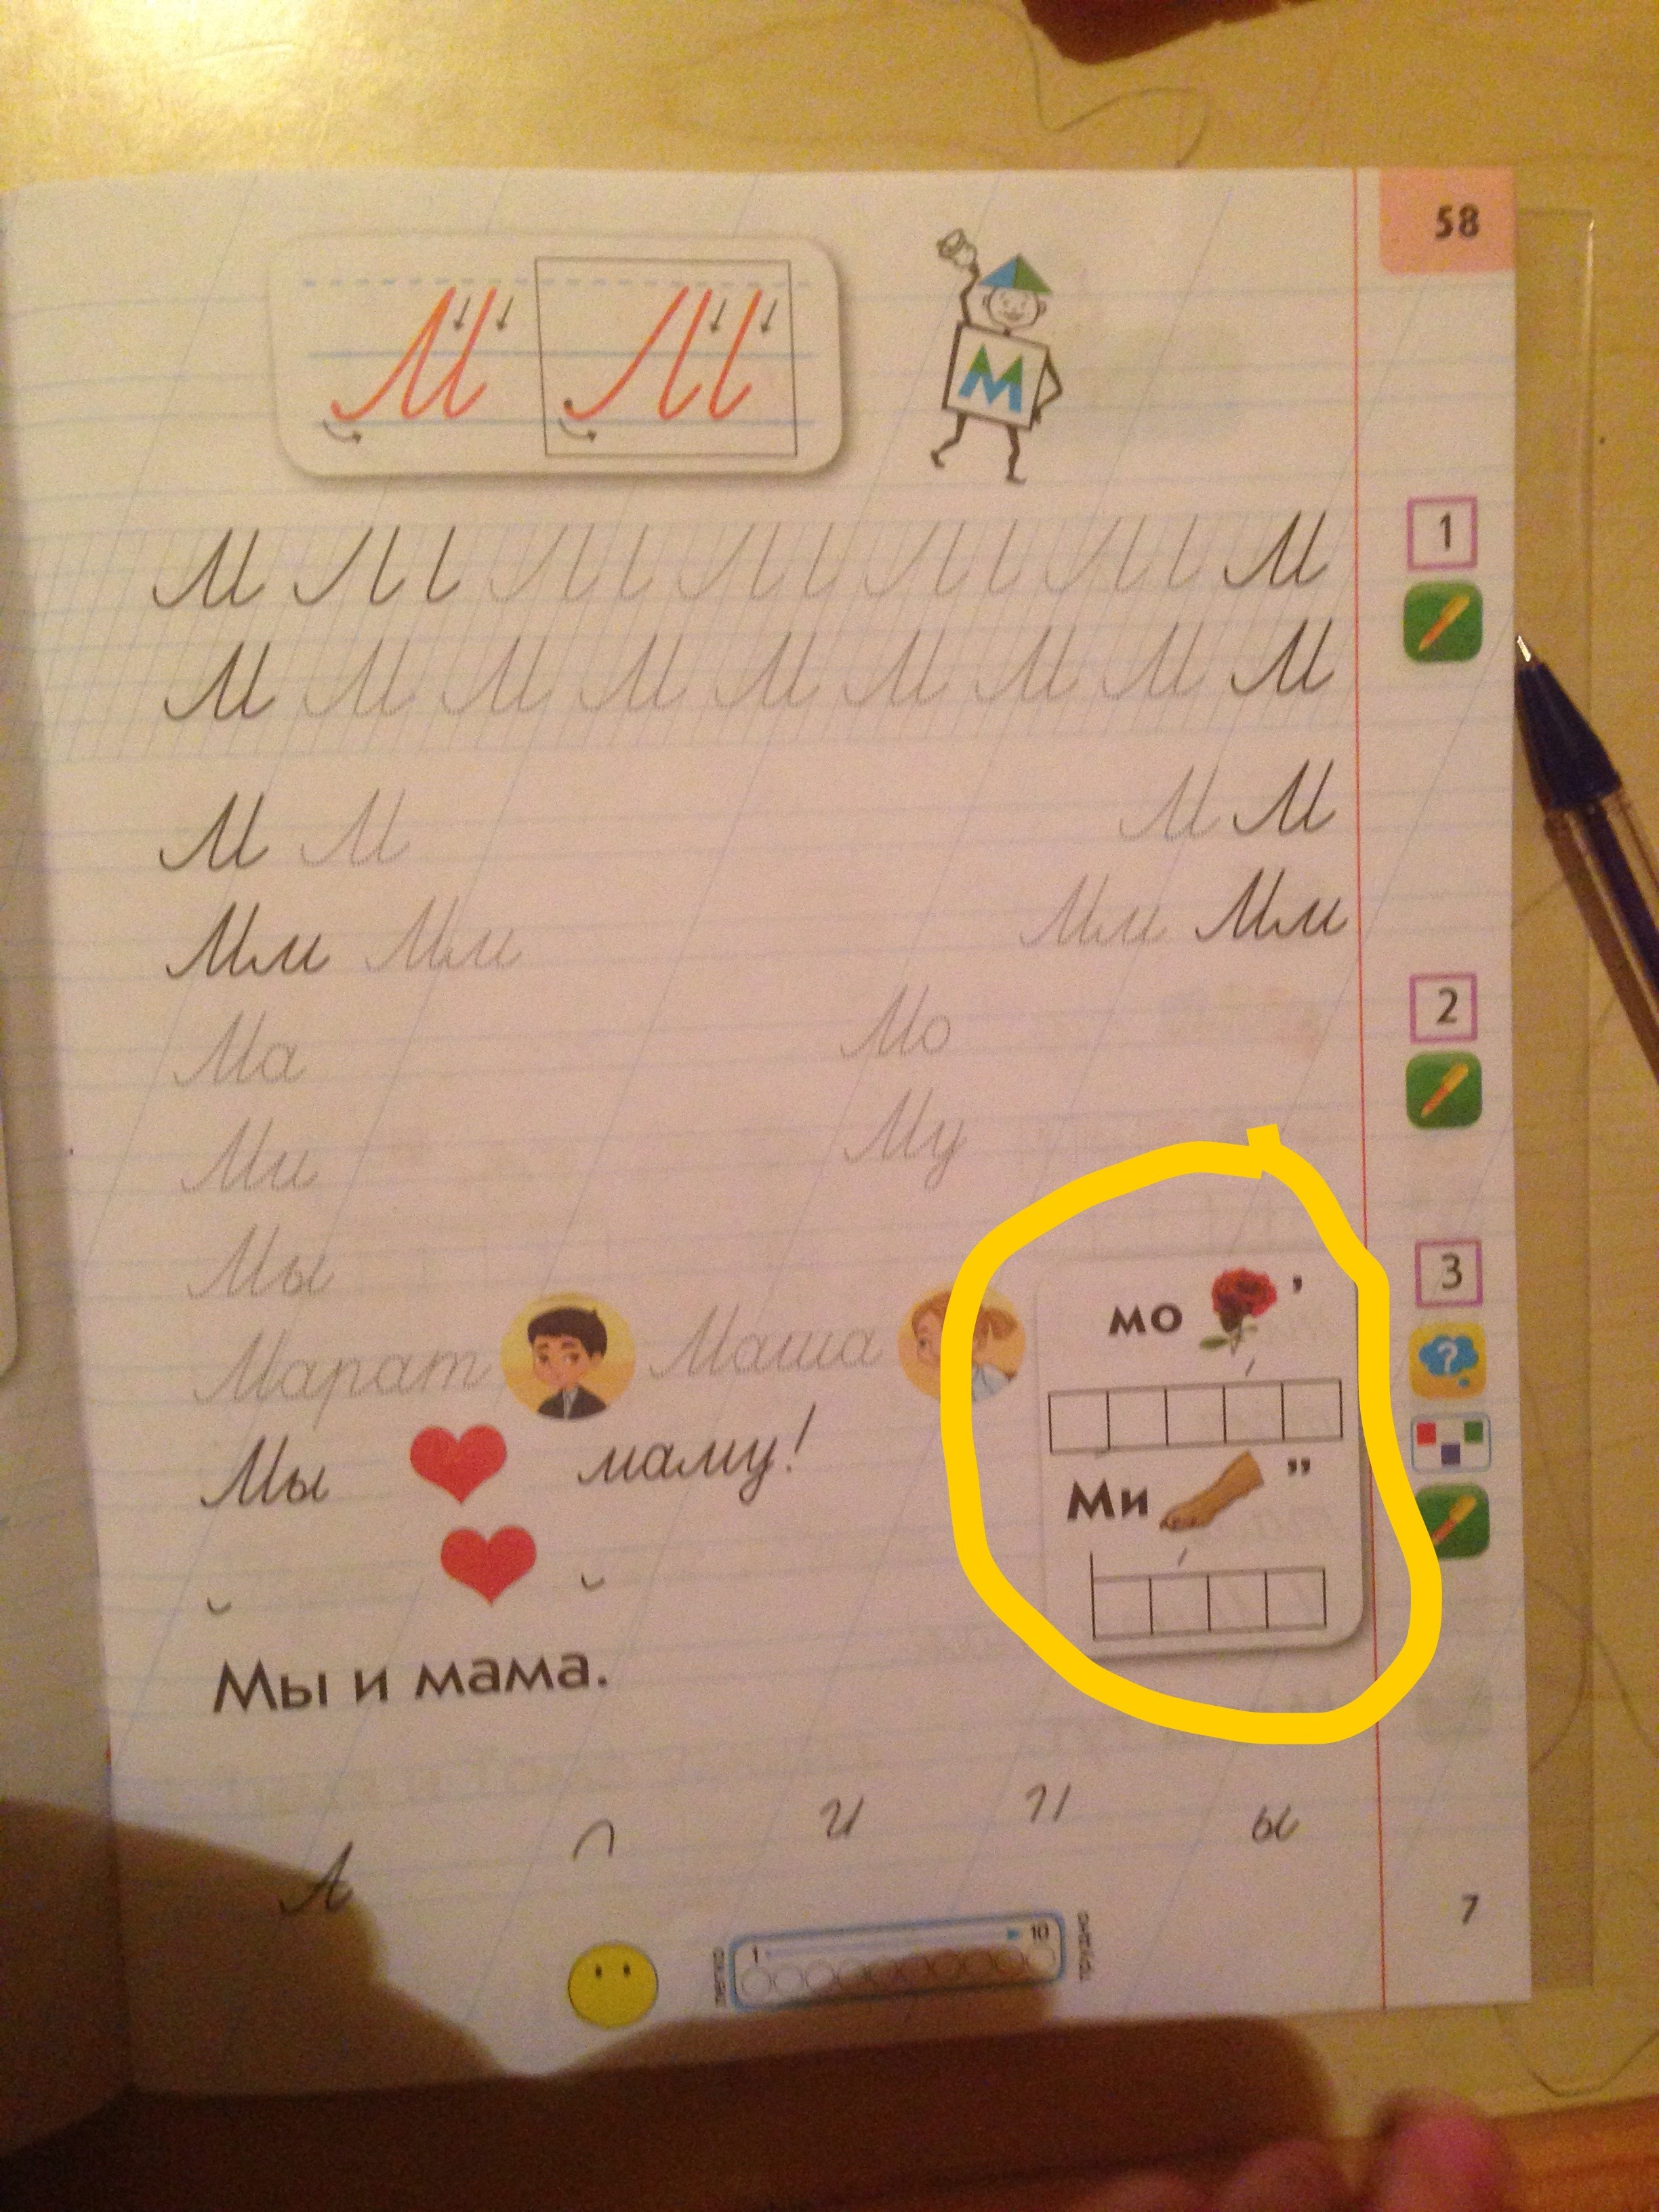 58
М
М М
М М
1
М М М М М М М
М М М М М М М М М
М М М М
Мм Мм Мм Мм
Ма Мо
2
Ми Му
Мы
3
мо ’
Марат Маша
?
Мы маму!
Ми ”
Мы и мама.
и ы
7
легко 1 10 трудно